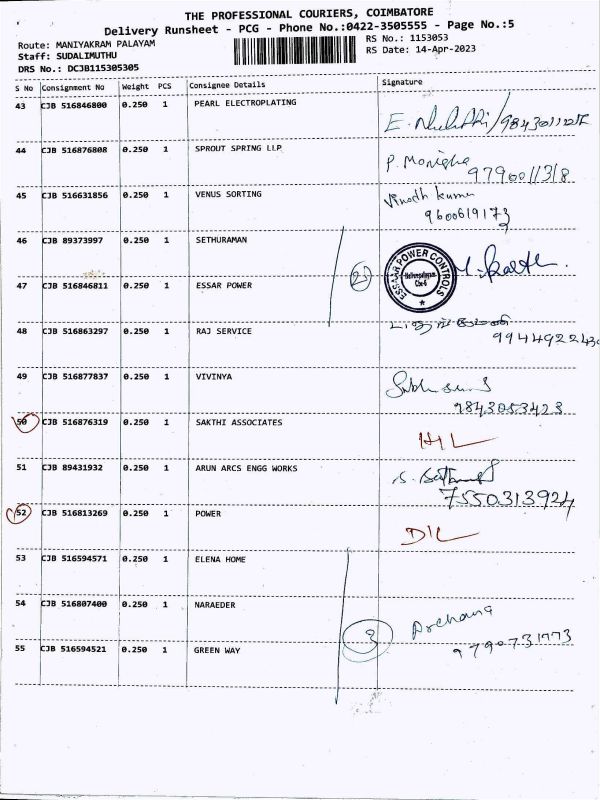 THE PROFESSIONAL COURIERS, COIMBATORE
Delivery Runsheet - PCG - Phone No.:0422-3505555 - Page No.:5
Route: MANIYAKRAM PALAYAM
RS No.: 1153053
Staff: SUDALIMUTHU
RS Date: 14-Apr-2023
DRS No.: DCJB115305305
S No Consignment No Weight PCS Consignee Details Signature
43 CJB 516846800 0.250 1 PEARL ELECTROPLATING
44 CJB 516876808 0.250 1 SPROUT SPRING LLP
P. Monigha
9790011318
45 CJB 516631856 0.250 1 VENUS SORTING
Vinodh kumar
9600619173
46 CJB 89373997 0.250 1 SETHURAMAN
ESSAAR POWER CONTROLS
Cbe-6
47 CJB 516846811 0.250 1 ESSAR POWER
48 CJB 516863297 0.250 1 RAJ SERVICE
49 CJB 516877837 0.250 1 VIVINYA
9843053423
50 CJB 516876319 0.250 1 SAKTHI ASSOCIATES
51 CJB 89431932 0.250 1 ARUN ARCS ENGG WORKS
7550313924
52 CJB 516813269 0.250 1 POWER
D/L
53 CJB 516594571 0.250 1 ELENA HOME
54 CJB 516807400 0.250 1 NARAEDER
3 Archana
9790731773
55 CJB 516594521 0.250 1 GREEN WAY